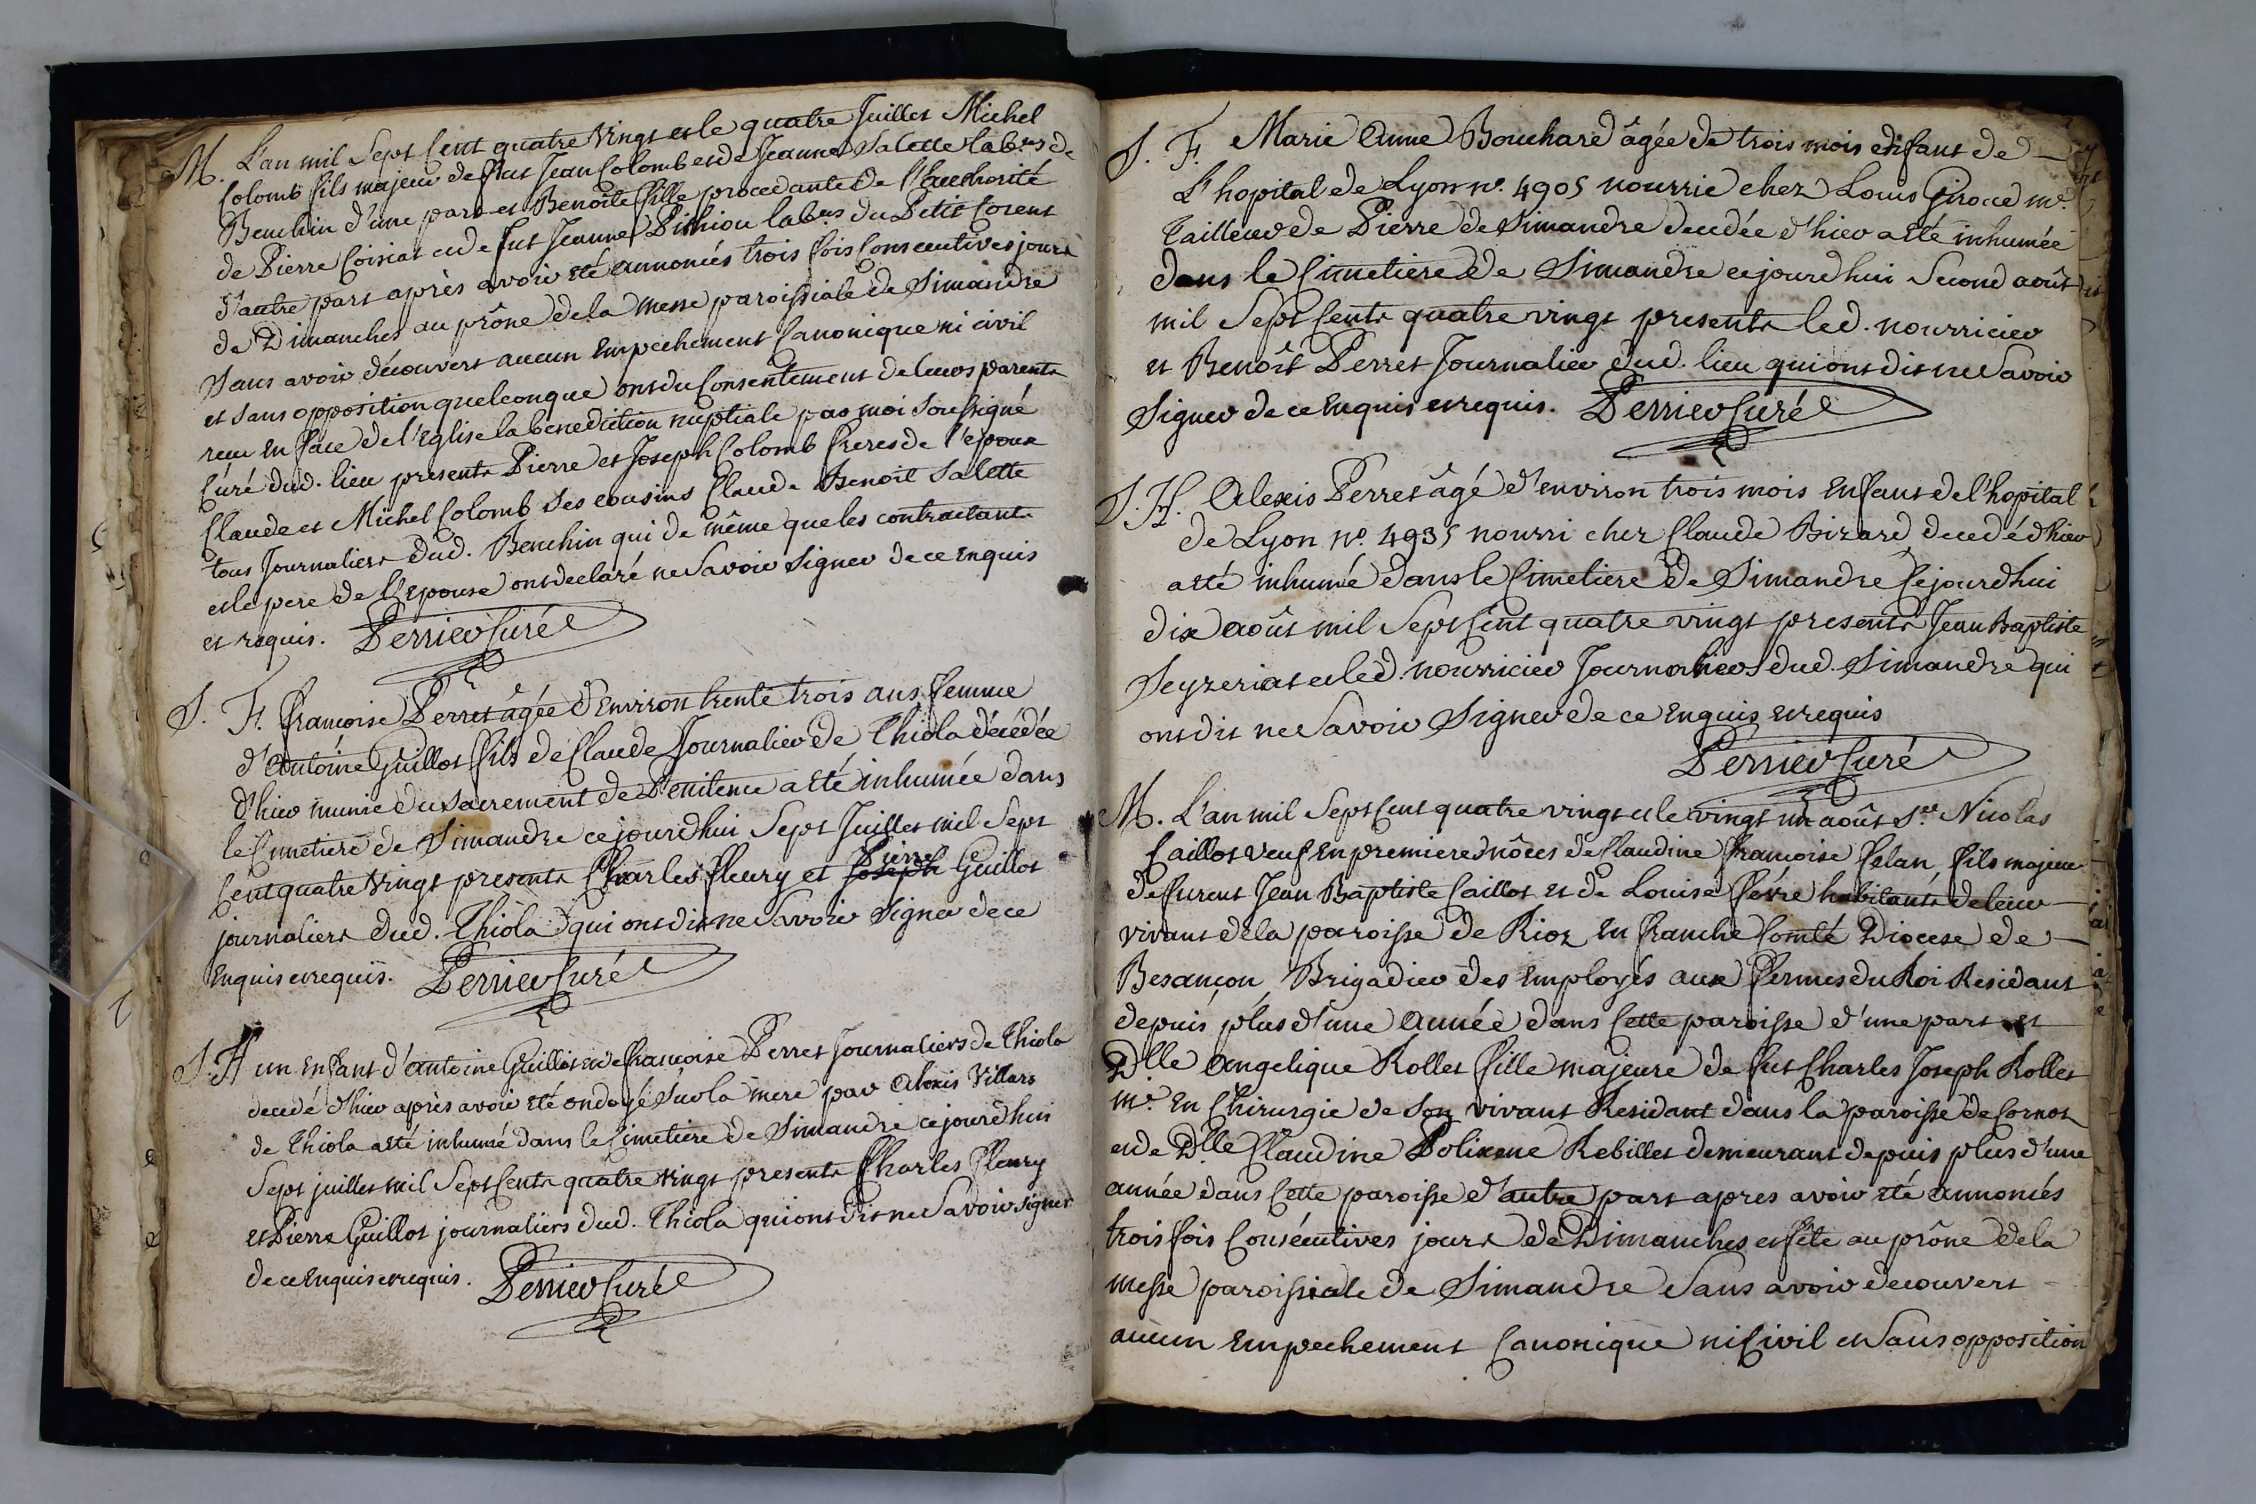 M. L'an mil Sept Cent quatre Vingt et le quatre Juillet Michel
Colomb fils majeur de fut Jean Colomb et de Jeanne Salette lab.rs de
Beuchin d'une part et Benoîte fille procedante de l'authorité
de Pierre Coisiat et de fut Jeanne Pithiou lab.rs du Petit Corent
d'autre part après avoir été annoncés trois fois Consecutives jours
de Dimanches au prône de la Messe paroissiale de Simandre
Sans avoir découvert aucun Empechement Canonique ni civil
et sans opposition quelconque ont du Consentement de leurs parents
reçu En face de l'Eglise la benediction nuptiale par moi Soussigné
Curé dud. lieu presents Pierre et Joseph Colomb freres de l'epoux
Claude et Michel Colomb Ses cousins Claude Benoit Salette
tous Journaliers dud. Beuchin qui de même que les contractants
et le pere de l'Epouse ont declaré ne Savoir Signer de ce Enquis
et requis. Perrier Curé
S. F. françoise Perret âgée d'Environ trente trois ans femme
d'Antoine Guillot fils de Claude Journalier de Thiola décédée
d'hier munie du Sacrement de Penitence a été inhumée dans
le Cimetiere de Simandre ce jourd'hui Sept Juillet mil Sept
Cent quatre Vingt presents Charles Fleury et Joseph Pierre Guillot
journaliers dud. Thiola qui ont dit ne Savoir Signer de ce
Enquis et requis. Perrier Curé
S. H un Enfant d'antoine Guillot et de françoise Perret Journaliers de Thiola
decedé d'hier après avoir été ondoyé Sur la mere par Alexis Villars
de Thiola a été inhumé dans le Cimetiere de Simandre ce jourd'hui
Sept juillet mil Sept Cents quatre Vingt presents Charles Fleury
et Pierre Guillot journaliers dud. Thiola qui ont dit ne Savoir Signer
de ce Enquis et requis. Perrier Curé
S. F. Marie Anne Bouchard âgée de trois mois enfant de
L'hopital de Lyon n.o 4905 nourrie chez Louis Giroud m.e
Tailleur de Pierre de Simandre decedée d'hier a été inhumée
dans le Cimetiere de Simandre ce jourd'hui Second août
mil Sept Cents quatre vingt presents led. nourricier
et Benoît Perret Journalier dud. lieu qui ont dit ne Savoir
Signer de ce Enquis et requis. Perrier Curé
S. H. Alexis Perret âgé d'environ trois mois Enfant de l'hopital
de Lyon n.o 4935 nourri chez Claude Bizard decedé d'hier
a été inhumé dans le Cimetiere de Simandre Ce jourd'hui
dix août mil Sept Cent quatre vingt presents Jean Baptiste
Seyzeriat et led. nourricier Journaliers dud. Simandre qui
ont dit ne Savoir Signer de ce Enquis et requis
Perrier Curé
M. L'an mil Sept Cent quatre vingt et le vingt un août S.r Nicolas
Caillot veuf En premieres nôces de Claudine françoise felan, fils majeur
de furent Jean Baptiste Caillot et de Louise fevre habitants de leur
vivant de la paroisse de Rioz En franche Comté Diocese de
Besançon, Brigadier des Employés aux fermes du Roi Residant
depuis plus d'une Année dans Cette paroisse d'une part et
D.lle Angelique Rollet fille majeure de fut Charles Joseph Rollet
m.e En Chirurgie de Son vivant Residant dans la paroisse de Cornot
et de D.lle Claudine Polixene Rebillet demeurant depuis plus d'une
année dans Cette paroisse d'autre part apres avoir été annoncés
trois fois Consécutives jours de Dimanches et fête au prône de la
messe paroissiale de Simandre Sans avoir decouvert
aucun Empechement Canonique ni Civil et Sans opposition